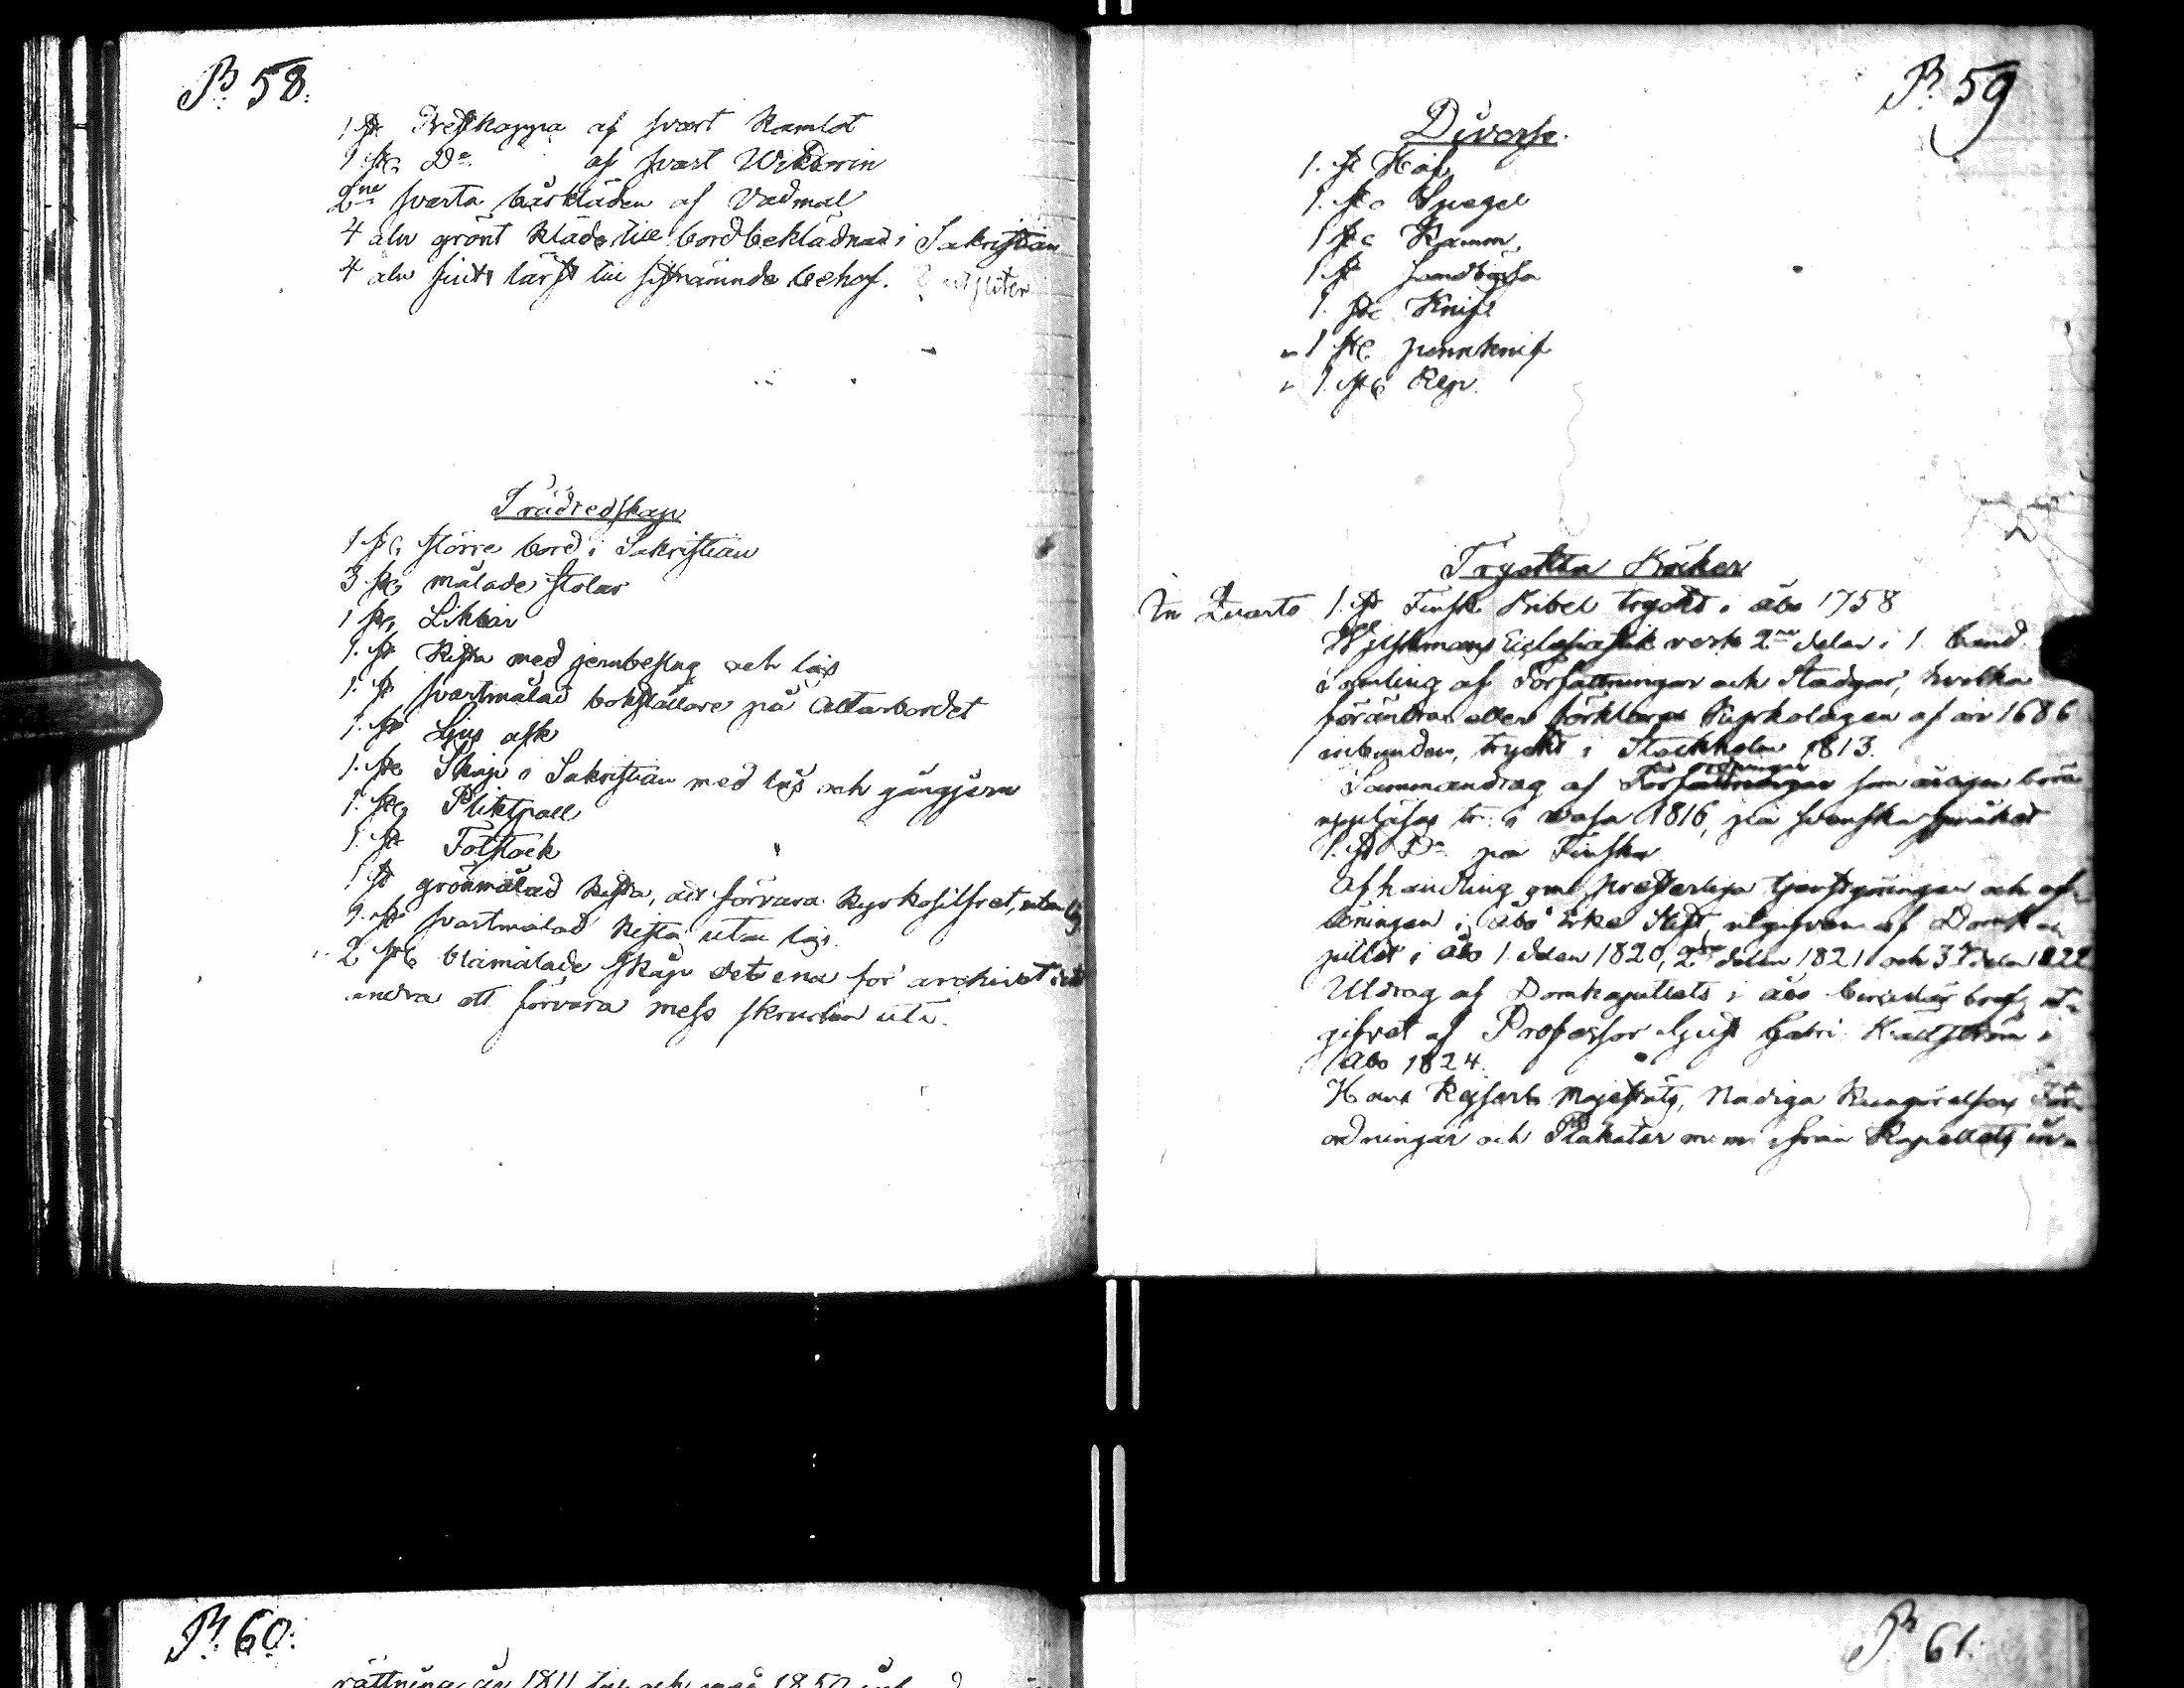 P. 58.
1 st. Prestkappa af svart Kamlot
1 st. Do af svart
2ne svarta bårkläden af vadmal
4 aln grönt kläde till bordbeklädnad i Sakristian
4 aln fint lärft till sistnämnde behof.
Trädredskap
1 st. större bord i Sakristian
3 st. målade stolar
1 st. Likbår
1. st Kista med jernbeslag och lås
1. st svartmålad bokställare på Altarbordet
1. st Ljus ask
1. st Skåp i Sakristian med lås och gångjern
1. st Pliktpall
1. st Fotstock
1 st grönmålad Kista, att förvara Kyrkosilfret, utan lås
1. st svartmålad Kista utan lås.
2 st blåmålade skåp det ena för archivet det
andra att förvara mess skruden uti.
P. 59
Diverse.
1. st Håf
1. st Spegel
1 st Kamm
1 st Sandbössa
1. st Knif
1 st pennknif
1. st Rep.
Tryckta Böcker
In Quarto 1. st Finsk Bibel tryckt i Åbo 1758
Ecclesiastik verk 2ne delar i 1. band.
Samling af Författningar och Stadgar, hvilka
förändra eller förklara Kyrkolagen af år 1686
inbunden, tryckt i Stockholm 1813.
ordningar
Sammandrag af Författningar som årligen böra
uppläsas tr. i Wasa 1816, på svenska språket
1. st Do på Finska
Afhandling om presterliga tjenstgöringen och af-
löningen i Åbo Erke Stift, utgifven af Domka-
pitlet i Åbo 1. delen 1820, 2dra delen 1821 och 3dje delen 1822
Utdrag af Domkapitlets i Åbo Circulär bref, ut-
gifvet af Professor Gust. Gabr. Hällström i
Åbo 1824.
Hans Kejserl. Majestäts, Nådiga Kungörelser, För-
ordningar och Plakater m.m. ifrån Kapellets in-
P. 60.
rättning år 1811 till och med 1850
P. 61.